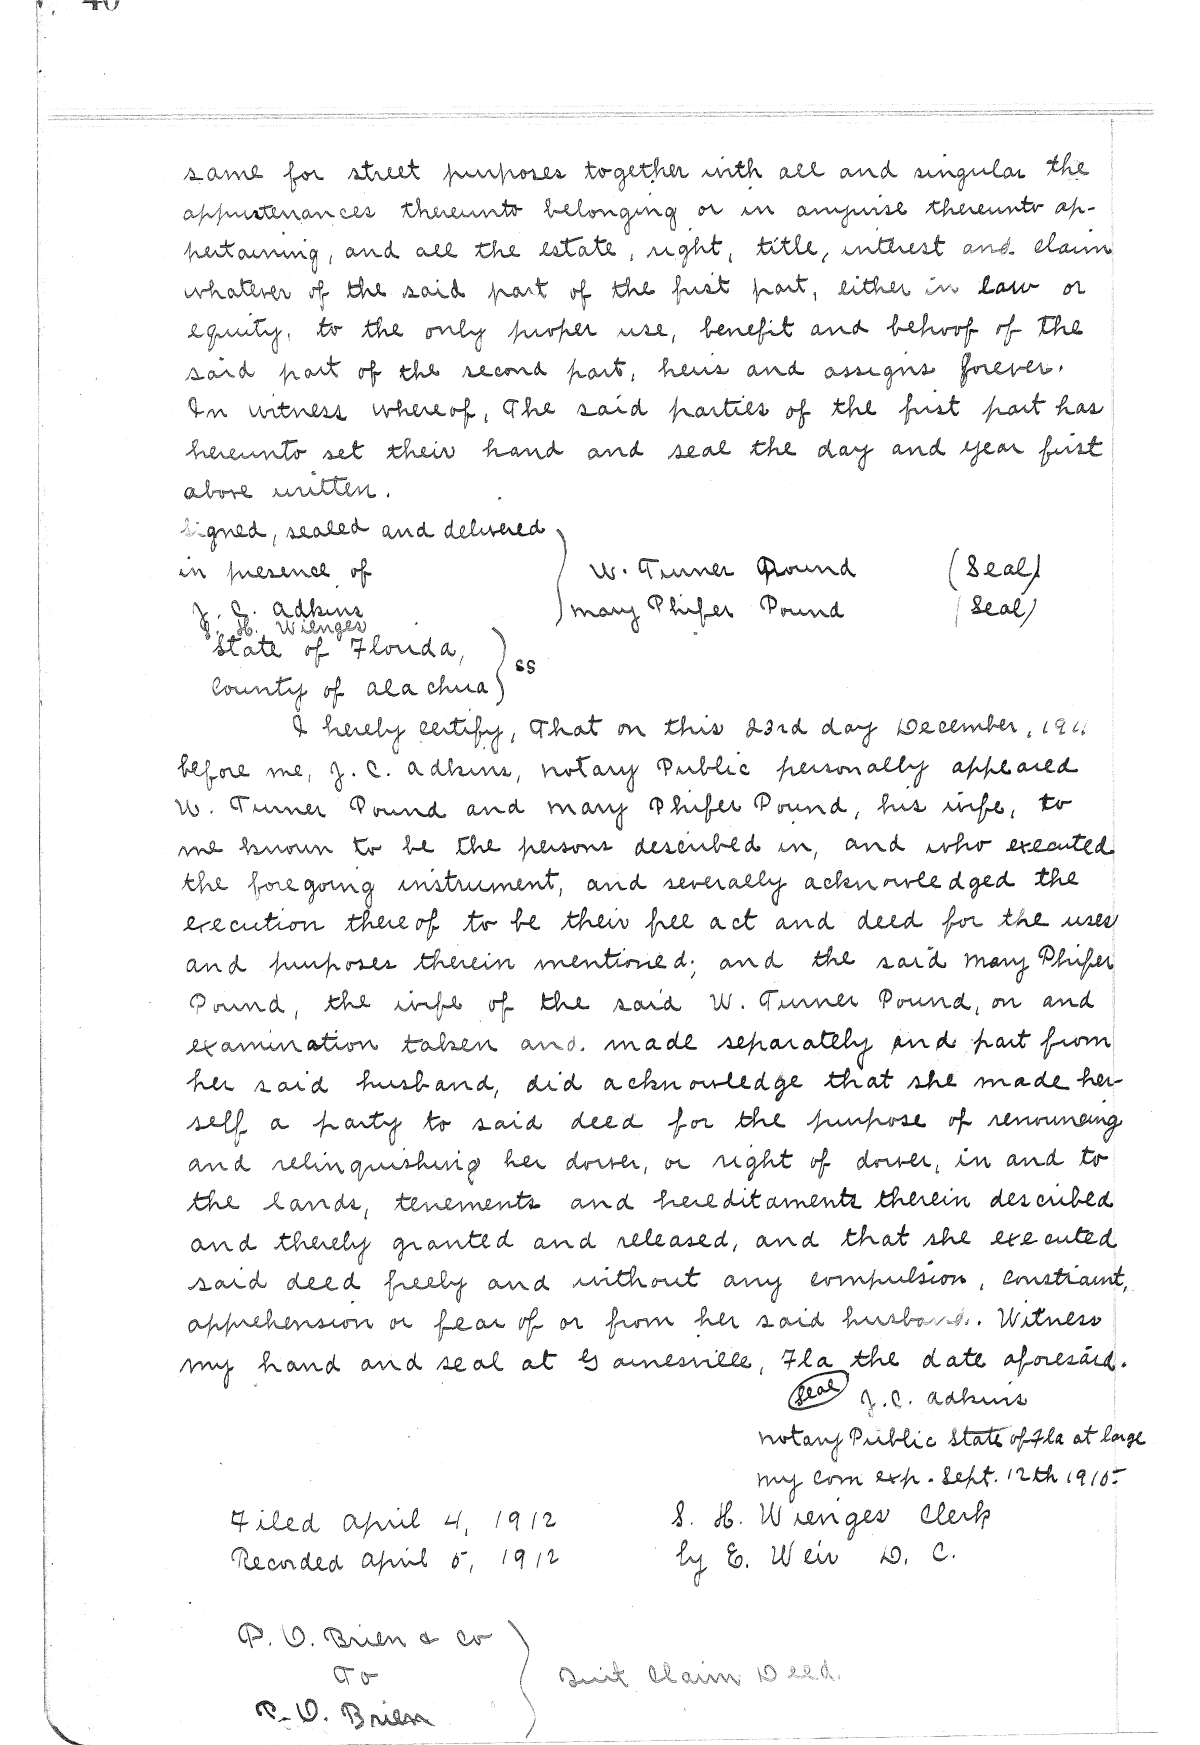 40
same for street purposes together with all and singular the
appurtenances thereunto belonging or in anywise thereunto ap-
pertaining, and all the estate, right, title, interest and claim
whatever of the said part of the first part, either in law or
equity, to the only proper use, benefit and behoof of the
said part of the second part, heirs and assigns forever.
In witness whereof, The said parties of the first part has
hereunto set their hand and seal the day and year first
above written.
Signed, sealed and delivered
in presence of
W. Turner Pound (Seal)
J. C. Adkins
Mary Phifer Pound (Seal)
S. H. Wienges
State of Florida,
County of Alachua ss
I hereby certify, That on this 23rd day December, 191
before me, J. C. Adkins, Notary Public personally appeared
W. Turner Pound and Mary Phifer Pound, his wife, to
me known to be the persons described in, and who executed
the foregoing instrument, and severally acknowledged the
execution thereof to be their free act and deed for the uses
and purposes therein mentioned; and the said Mary Phifer
Pound, the wife of the said W. Turner Pound, on and
examination taken and made separately and part from
her said husband, did acknowledge that she made her-
self a party to said deed for the purpose of renouncing
and relinquishing her dower, or right of dower, in and to
the lands, tenements and hereditaments therein described
and thereby granted and released, and that she executed
said deed freely and without any compulsion, constraint,
apprehension or fear of or from her said husband. Witness
my hand and seal at Gainesville, Fla the date aforesaid.
Seal J. C. Adkins
Notary Public State of Fla at large
my com exp. Sept. 12th 1915
Filed April 4, 1912 S. H. Wienges Clerk
Recorded April 5, 1912 by E. Weir D. C.
P. O. Brien & Co
To Quit Claim Deed.
P. O. Brien